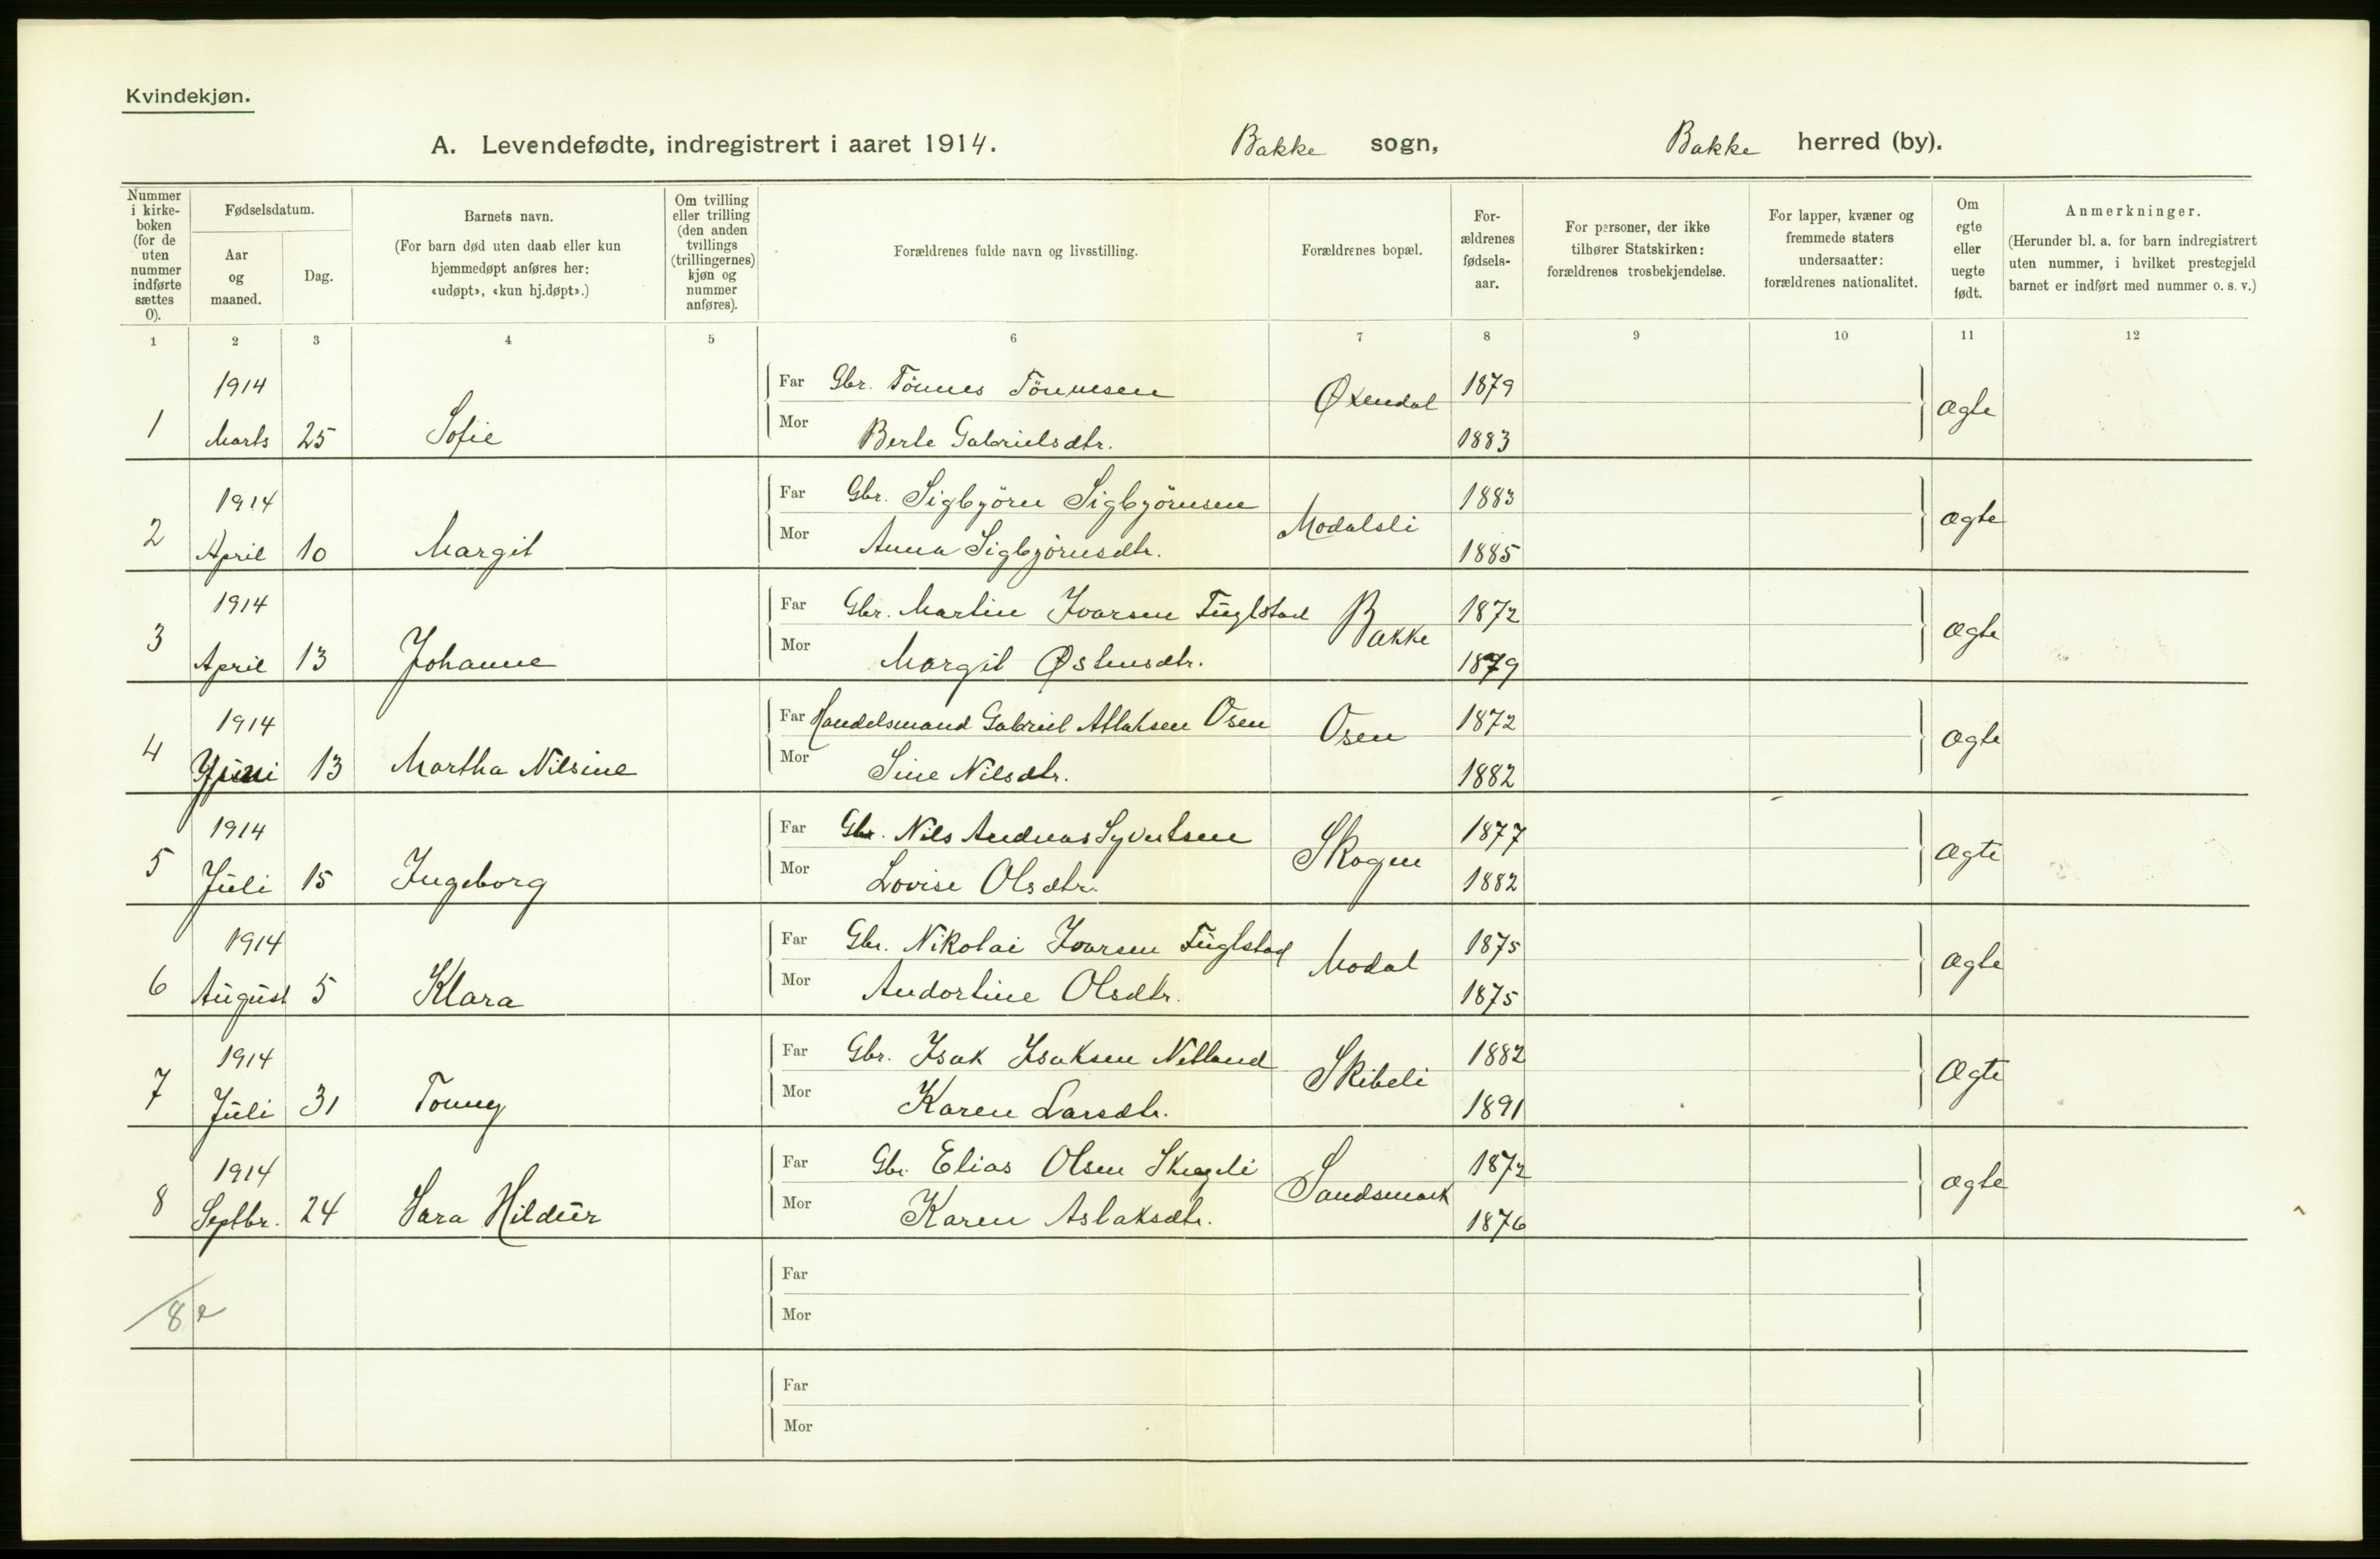 Kvindekjøn.
A. Levendefødte, indregistrert i aaret 1914. Bakke sogn, Bakke herred (by).
Nummer i kirke- boken (for de uten nummer indførte sættes 0).
Fødselsdatum.
Aar og maaned.
Dag.
Barnets navn.
(For barn død uten daab eller kun hjemmedøpt anføres her: «udøpt», «kun hj.døpt».)
Om tvilling eller trilling (den anden tvillings (trillingernes) kjøn og nummer anføres).
Forældrenes fulde navn og livsstilling.
Forældrenes bopæl.
For- ældrenes fødsels- aar.
For personer, der ikke tilhører Statskirken: forældrenes trosbekjendelse.
For lapper, kvæner og fremmede staters undersaatter: forældrenes nationalitet.
Om egte eller uegte født.
Anmerkninger.
(Herunder bl. a. for barn indregistrert uten nummer, i hvilket prestegjeld barnet er indført med nummer o. s. v.)
1 2 3 4 5 6 7 8 9 10 11 12
1914 Far Gbr. Tönnes Tönnesen Øxendal 1879 Ægte
1 Marts 25 Sofie Mor Berte Gabrielsdtr. 1883
1914 Far Gbr. Sigbjörn Sigbjörnsen Modalsli 1883 Ægte
2 April 10 Margit Mor Anna Sigbjörnsdtr. 1885
1914 Far Gbr. Martin Ivarsen Fuglstad Bakke 1872 Ægte
3 April 13 Johanne Mor Margit Østensdtr. 1879
1914 Far Handelsmand Gabriel Atlaksen Osen Osen 1872 Ægte
4 Juni 13 Martha Nilsine Mor Sine Nilsdtr. 1882
1914 Far Gbr. Nils Andreas Syvertsen Skogen 1877 Ægte
5 Juli 15 Ingeborg Mor Lovise Olsdtr. 1882
1914 Far Gbr. Nikolai Ivarsen Fuglstad Modal 1875 Ægte
6 August 5 Klara Mor Andortine Olsdtr. 1875
1914 Far Gbr. Isak Isaksen Netland Skibeli 1882 Ægte
7 Juli 31 Tonny Mor Karen Larsdtr. 1891
1914 Far Gbr. Elias Olsen Sandsmark 1872 Ægte
8 Septbr. 24 Sara Hildur Mor Karen Aslaksdtr. 1876
Far
8
Mor
Far
Mor